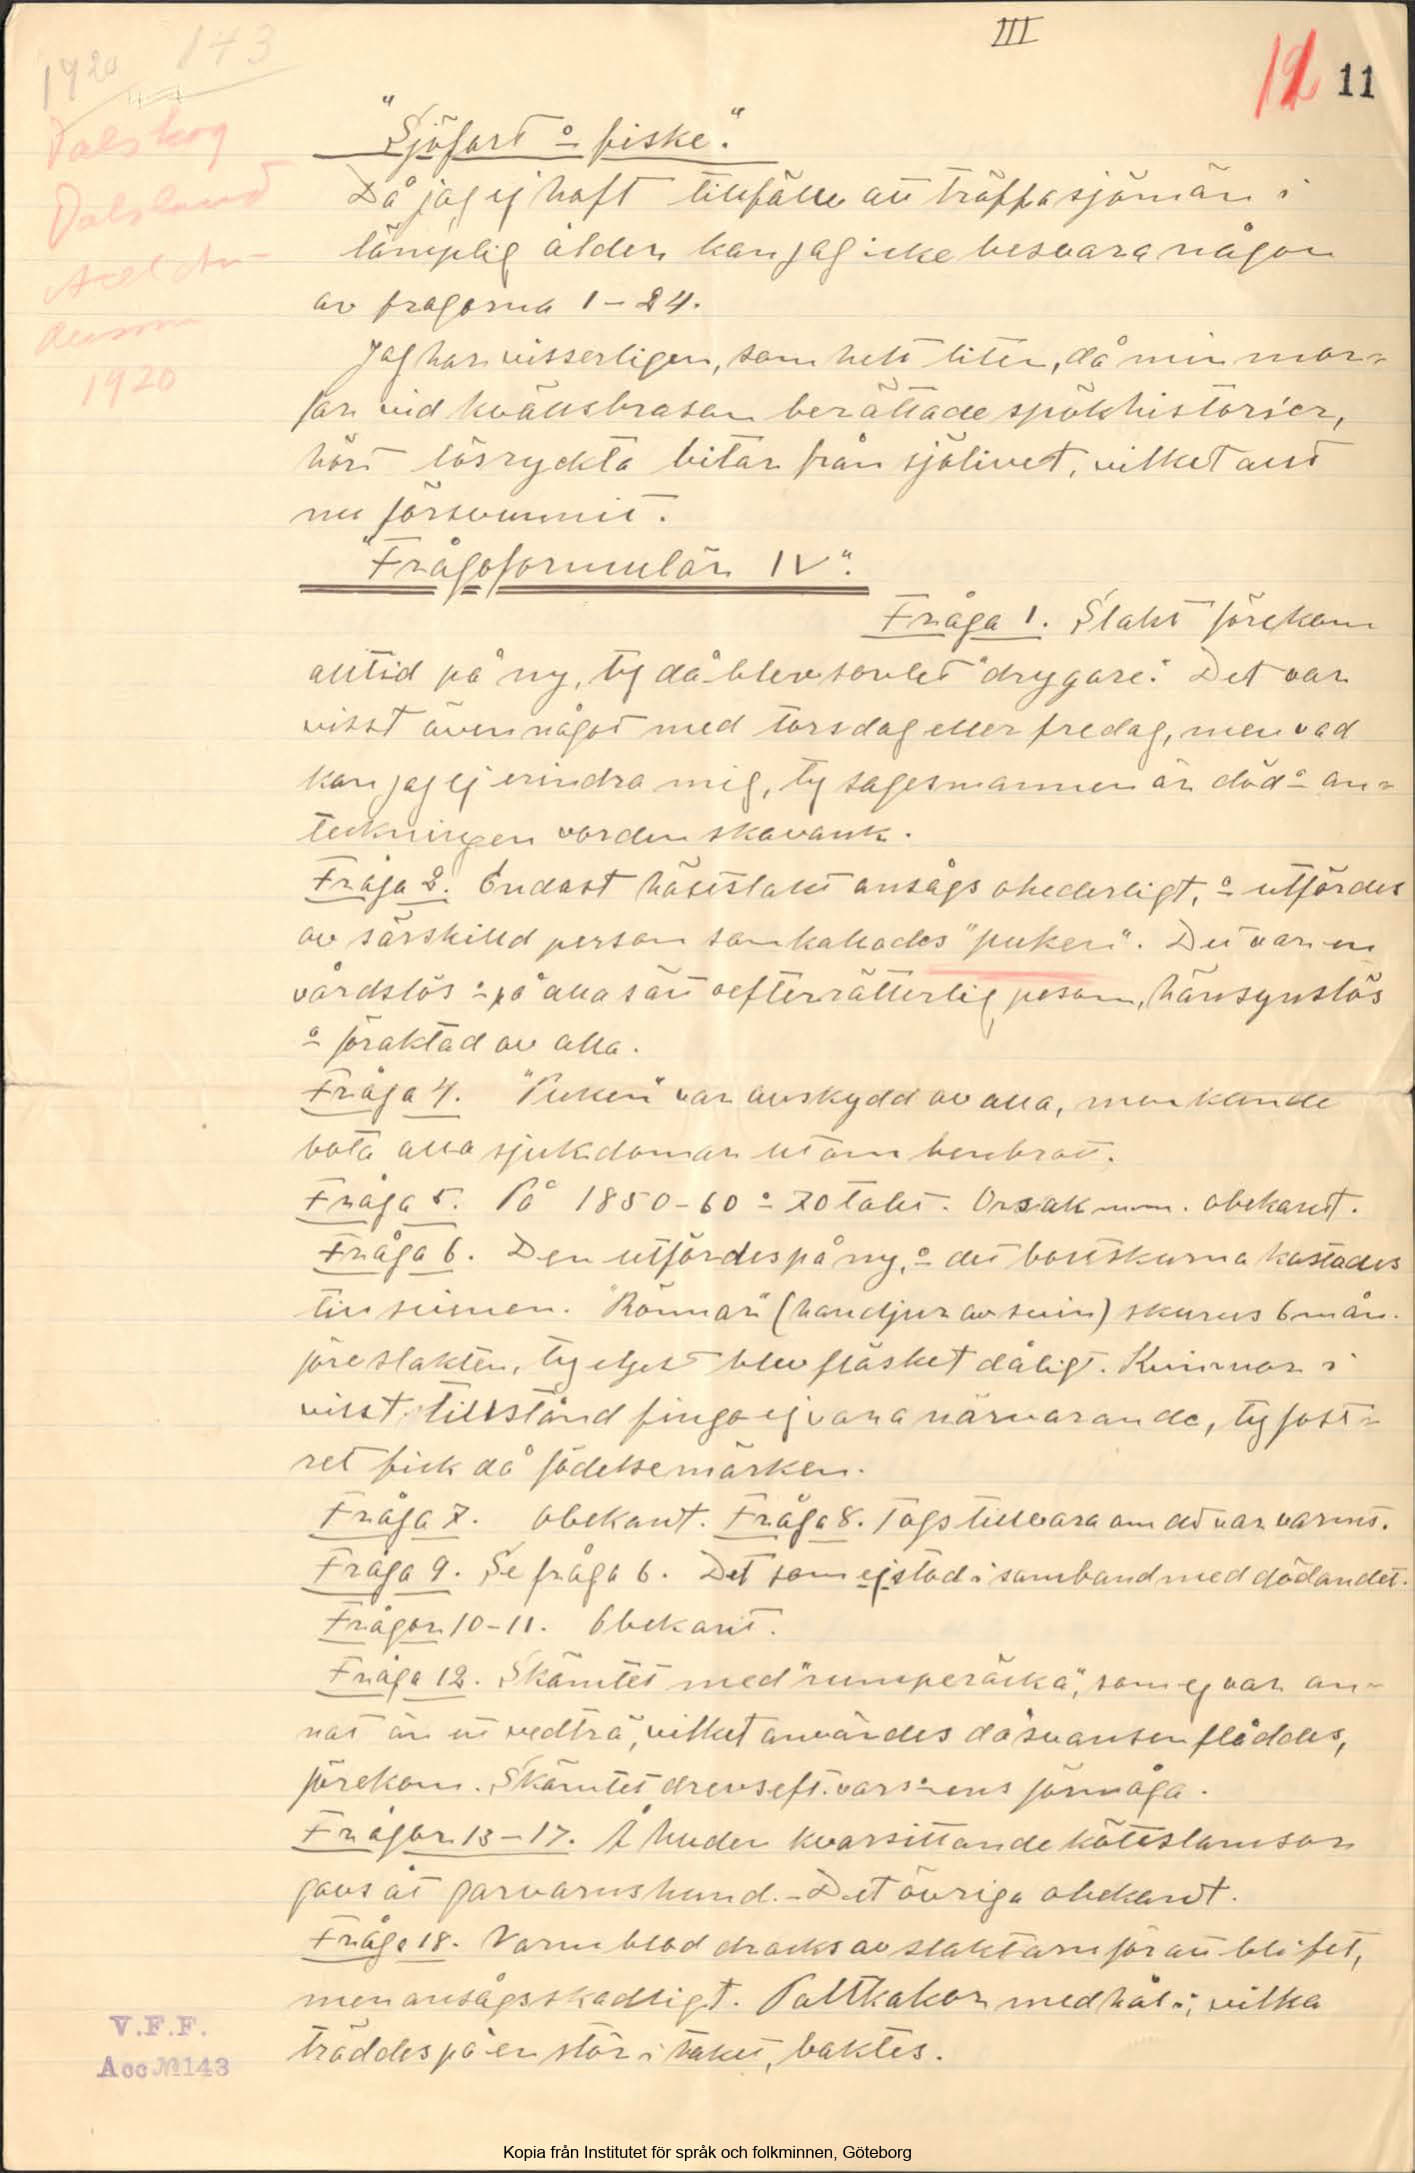 III
1920 143
12 11
Dalskog
Dalsland
Axel An-
dersson
1920
"Sjöfart o fiske".
Då jag ej haft tillfälle att träffa sjömän i
lämplig ålder, kan jag icke besvara någon
av frågorna 1-24.
Jag har visserligen, som helt liten, då min mor-
far vid kvällsbrasan berättade spökhistorier,
hört lösryckta bitar från sjölivet, vilket allt
nu försvunnit.
"Frågoformulär IV".
Fråga 1. Slakt förekom
alltid på ny, ty då blev sovlet "drygare". Det var
visst även något med torsdag eller fredag, men vad
kan jag ej erindra mig, ty sagesmannen är död o an-
teckningen vorden skavank.
Fråga 2. Endast hästslakt ansågs ohederligt, o utfördes
av särskilld person som kallades "puken". Det var en
vårdslös o på alla sätt oefterrätterlig peson, hänsynslös
o föraktad av alla.
Fråga 4. "Puken" var avskydd av alla, men kunde
bota alla sjukdomar utom benbrott.
Fråga 5. På 1850-60 o 70 talet. Orsak m.m. obekant.
Fråga 6. Den utfördes på ny, o det bortskurna kastades
till svinen. "Rönnar" (handjur av svin) skurus 6 mån.
före slakten, ty eljest blev fläsket dåligt. Kvinnor i
visst tillstånd fingo ej vara närvarande, ty fost-
ret fick då födelsemärken.
Fråga 7. Obekant. Fråga 8. Togs tillvara om det var varmt.
Fråga 9. Se fråga 6. Det som ej stod i samband med dödandet.
Frågor 10-11. Obekant.
Fråga 12. Skämtet med "rumperäcka", som ej var an-
nat än ett vedträ, vilket användes då svansen flåddes,
förekom. Skämtet drevs eft. vars o ens förmåga.
Frågor 13-17. Å huden kvarsittande köttslamsor
gavs åt garvarns hund. - Det övriga obekant.
Fråga 18. Varm blod dracks av slaktarn för att bli fet,
men ansågs skadligt. Paltkakor med hål i, vilka
träddes på en stör i taket, baktes.
V.F.F.
Acc № 143
Kopia från Institutet för språk och folkminnen, Göteborg